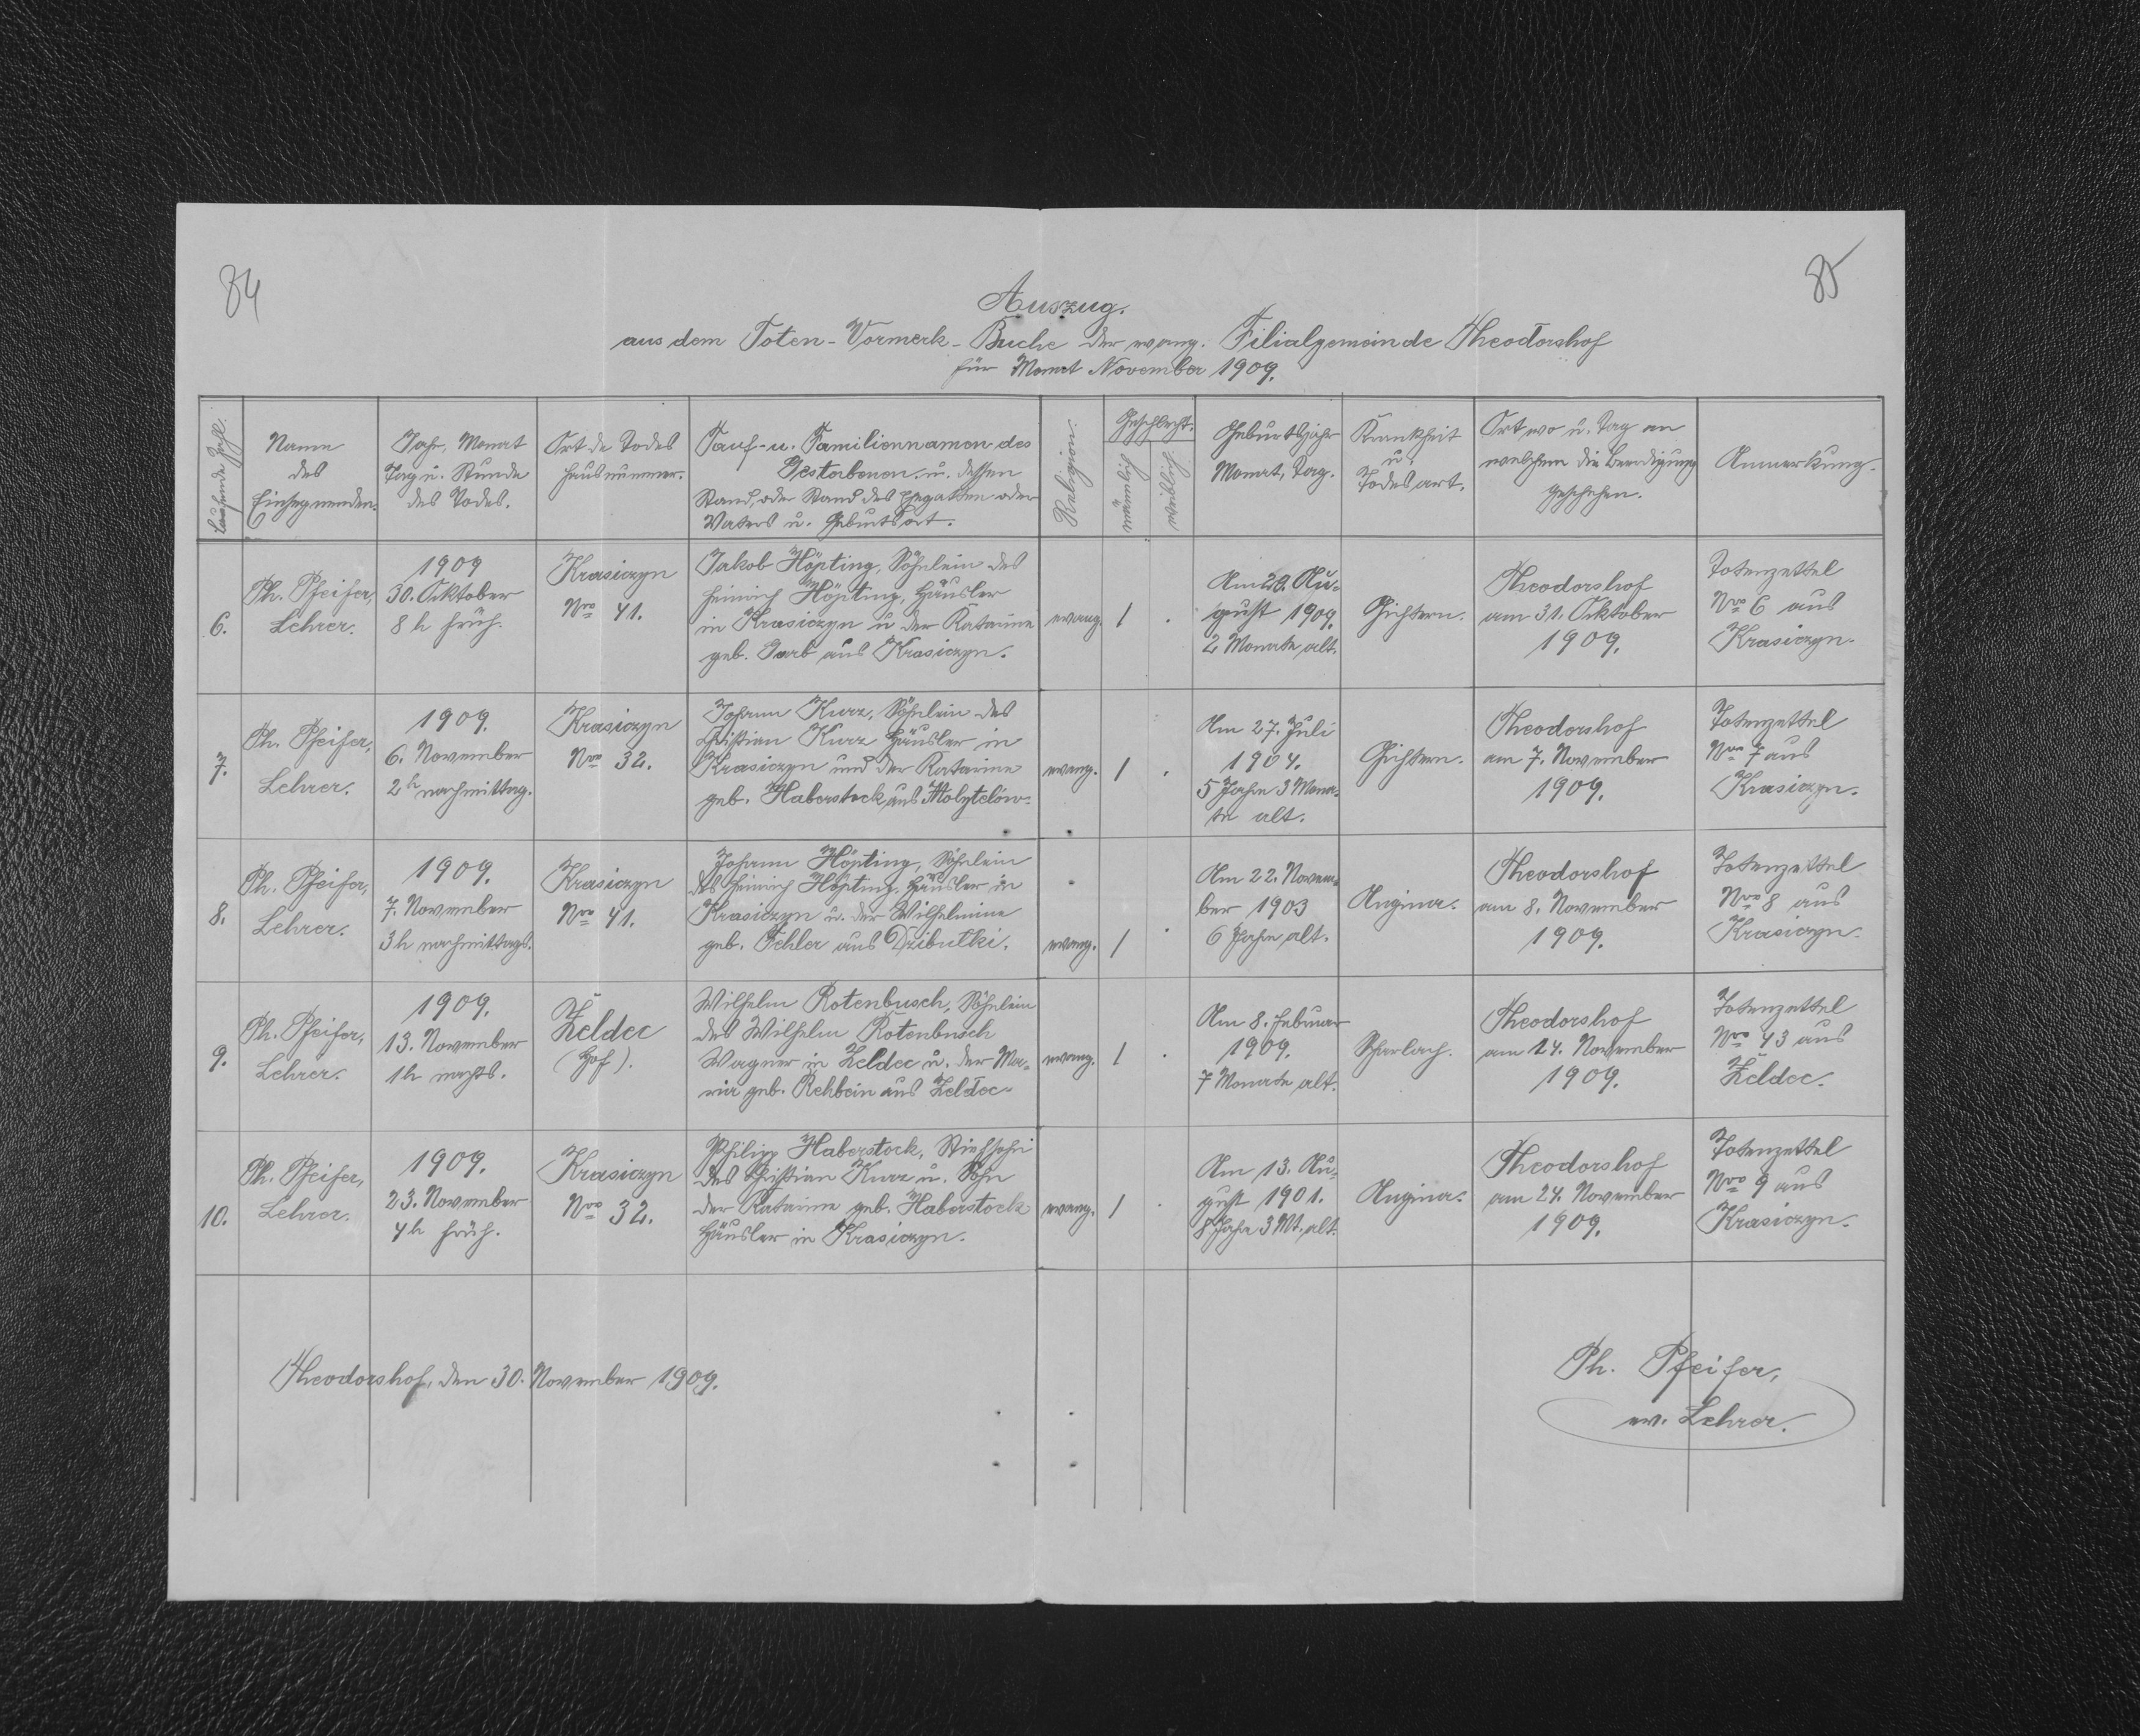 84
85
Auszug.
aus dem Toten-Vormerk-Buche der evang. Filialgemeinde Theodorshof
für Monat November 1909.
Laufende Zahl.
Name
des
Einsegnenden.
Jahr, Monat
Tag u. Stunde
des Todes.
Ort de Todes
Hausnummer.
Tauf- u. Familiennamen des
Gestorbenen u. dessen
Stand, oder Stand des Ehegatten oder
Vaters u. Geburtsort.
Religion.
Geschlecht.
männlich
weiblich
Geburtsjahr
Monat, Tag.
Krankheit
u.
Todesart.
Ort wo u. Tag an
welchem die Beerdigung
geschehen.
Anmerkung.
6.
Ph. Pfeifer,
Lehrer.
1909
30. Ocktober
8 h früh.
Krasiczyn
Nro 41.
Jakob Höpting, Söhnlein des
Heinrich Höpting, Häusler
in Krasiczyn u der Katarina
geb. aus Krasiczyn.
evang.
1
.
Am 28. Au-
gust 1909.
2 Monate alt.
Gichtern.
Theodorshof
am 31. Ocktober
1909.
Totenzettel
Nro 6 aus
Krasiczyn.
7.
Ph. Pfeifer,
Lehrer.
1909.
6. November
2h nachmittag.
Krasiczyn
Nro 32.
Johann Kurz, Söhnlein des
Christian Kurz Häusler in
Krasiczyn und der Katarina
geb. Haberstock aus Mołytelów.
evang.
1
.
Am 27. Juli
1904.
5 Jahre 3 Mona-
te alt.
Gichtern.
Theodorshof
am 7. November
1909.
Totenzettel
Nro 7 aus
Krasiczyn.
8.
Ph. Pfeifer,
Lehrer.
1909.
7. November
3h nachmittags.
Krasiczyn
Nro 41.
Johann Höpting, Söhnlein
des Heinrich Höpting, Häusler in
Krasiczyn u. der Wilhelmine
geb. Fehler aus Dzibułki.
evang.
1
.
Am 22. Novem-
ber 1903
6 Jahre alt.
Angina.
Theodorshof
am 8. November
1909.
Totenzettel
Nro 8 aus
Krasiczyn.
9.
Ph. Pfeifer,
Lehrer.
1909.
13. November
1h nachts.
Żeldec
(Hof).
Wilhelm Rotenbusch, Söhnlein
des Wilhelm Rotenbusch
Wagner in Żeldec u. der Ma-
ria geb. Rehbein aus Żeldec.
evang.
1
.
Am 8. Februar
1909.
7 Monate alt.
Scharlach.
Theodorshof
am 14. November
1909.
Totenzettel
Nro 43 aus
Żeldec.
10.
Ph. Pfeifer,
Lehrer.
1909.
23. November
4h früh.
Krasiczyn
Nro 32.
Philipp Haberstock, Stiefsohn
des Christian Kurz u. Sohn
der Katarina geb. Haberstock
Häusler in Krasiczyn.
evang.
1
.
Am 13. Au-
gust 1901.
8 Jahre 3 Mt. alt.
Angina.
Theodorshof
am 24. November
1909.
Totenzettel
Nro 9 aus
Krasiczyn.
Theodorshof, den 30. November 1909.
Ph. Pfeifer,
ev. Lehrer.